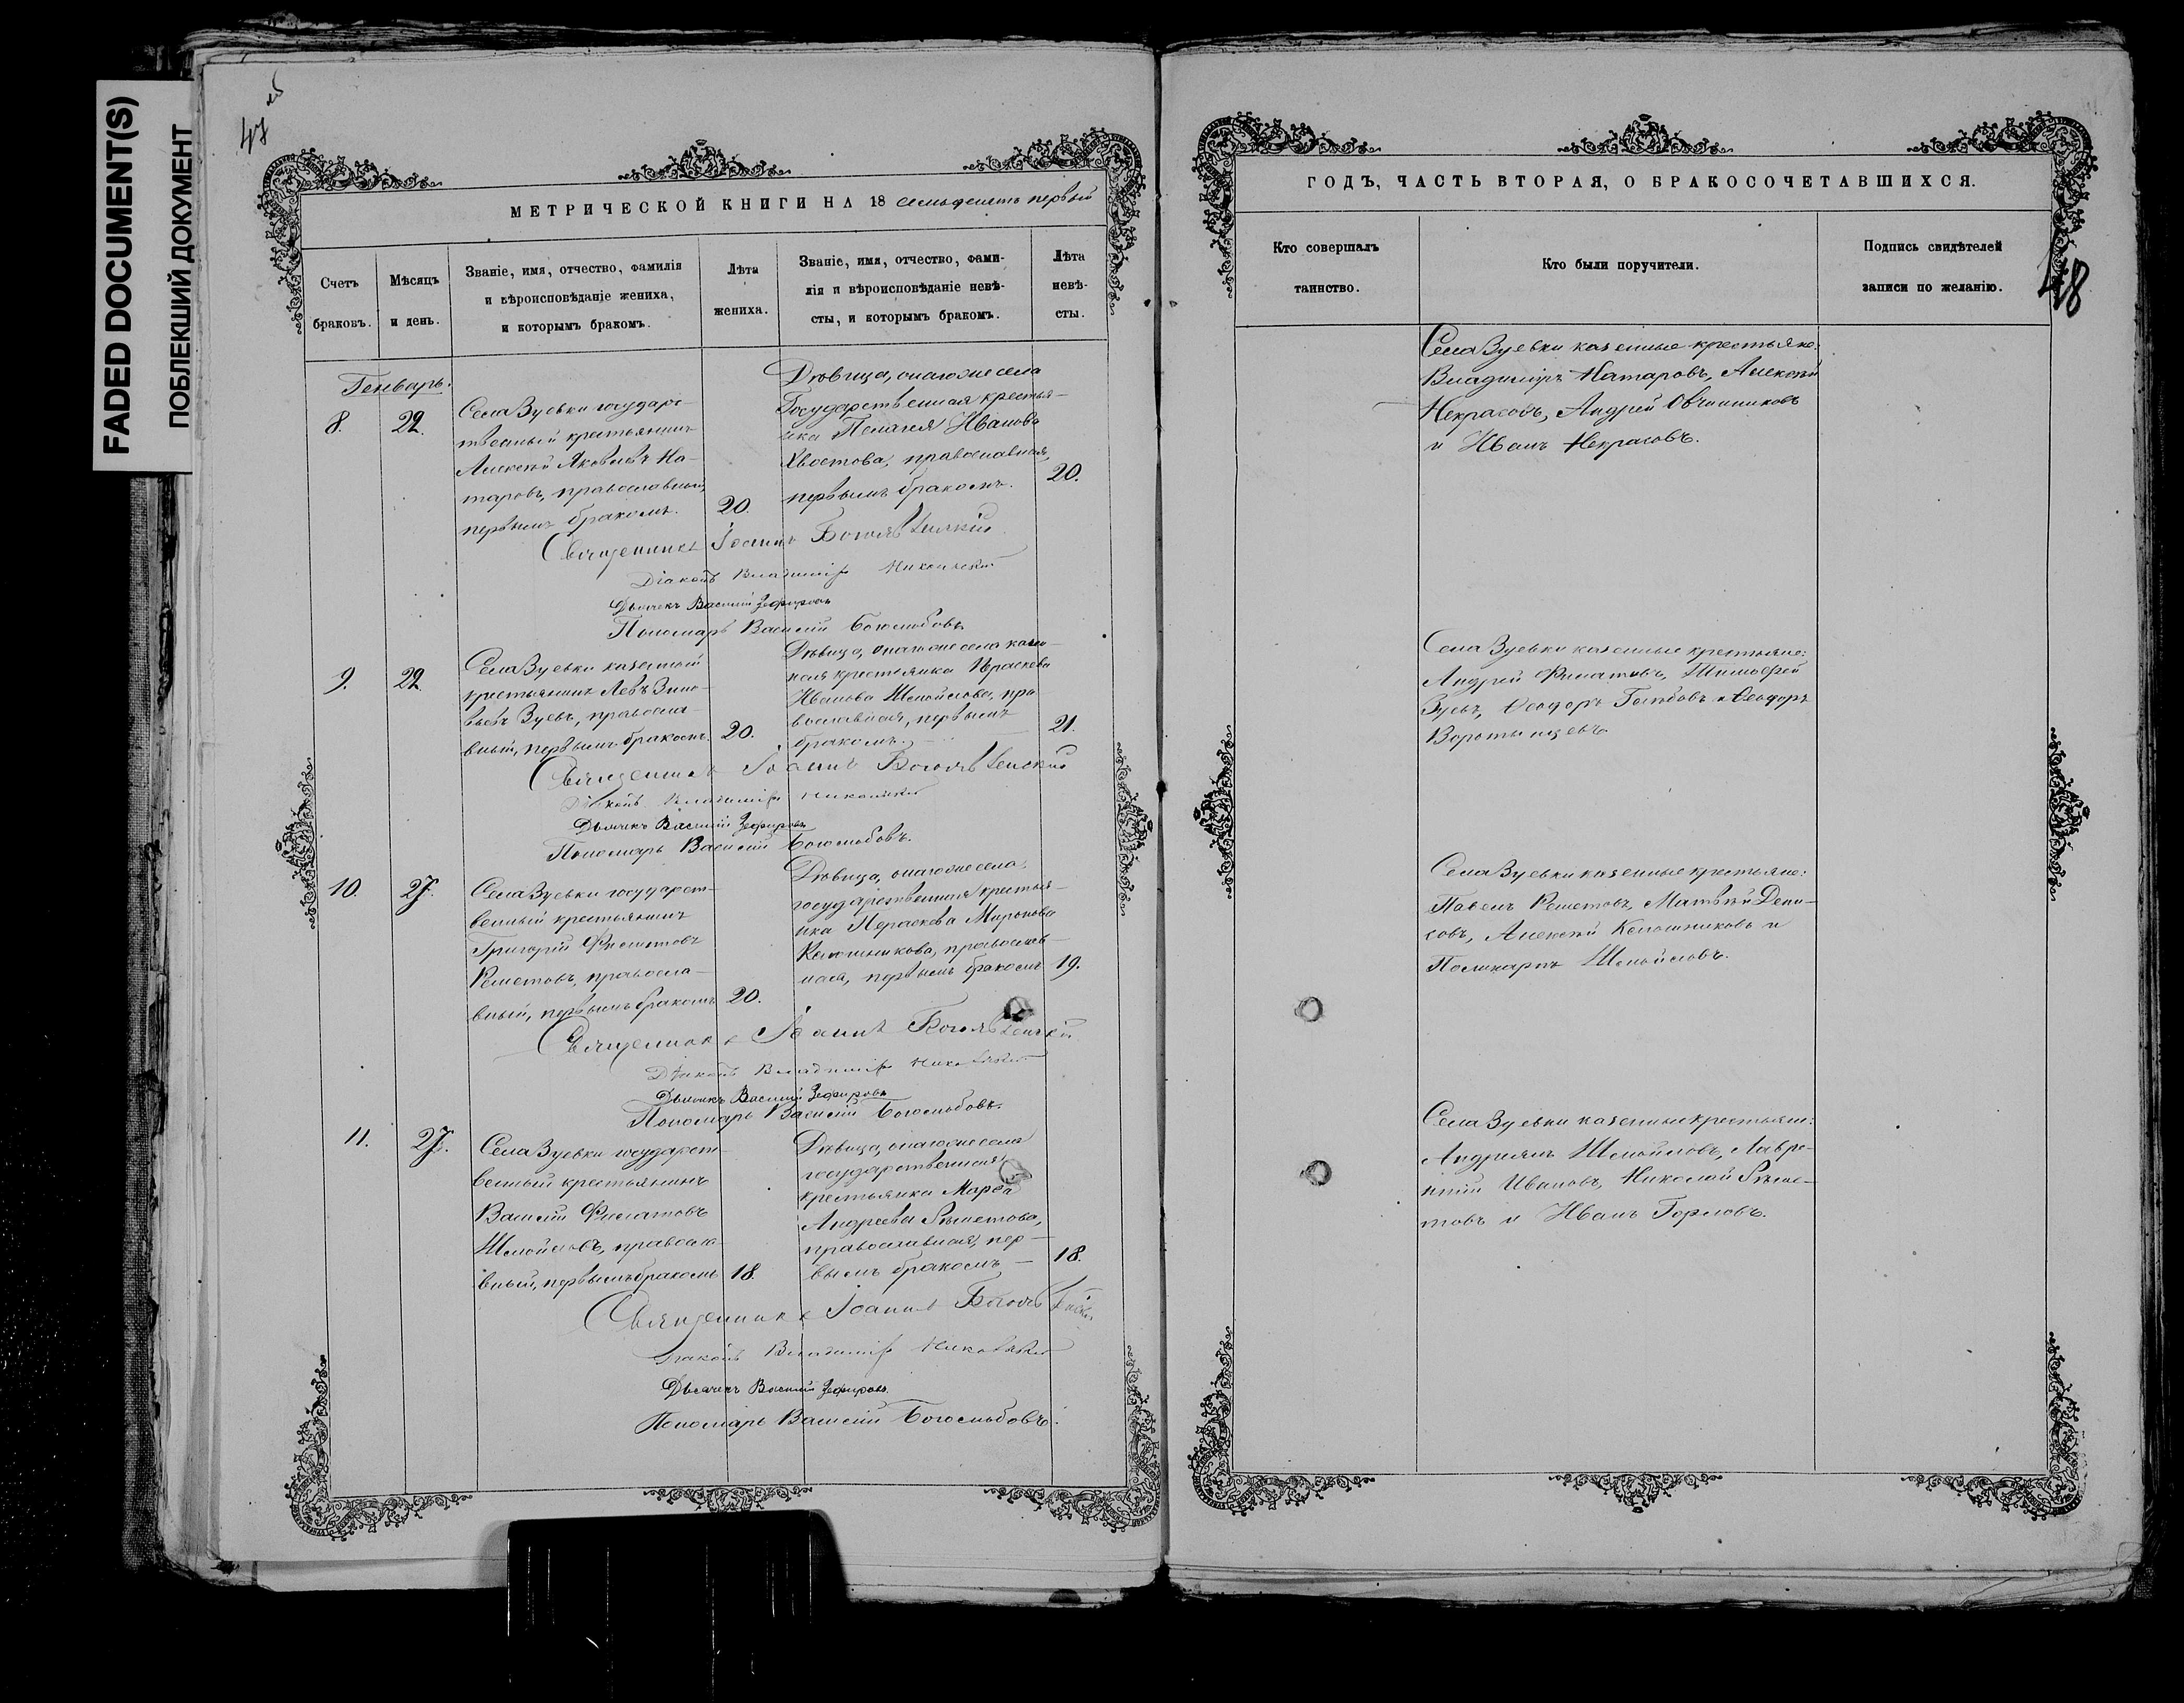 FADED DOCUMENT(S)
ПОБЛЕКШИЙ ДОКУМЕНТ
47 об
МЕТРИЧЕСКОЙ КНИГИ НА 18 семьдесятъ первый
Счетъ браковъ.
Мѣсяцъ и день.
Званіе, имя, отчество, фамилія
и вѣроисповѣданіе жениха,
и которымъ бракомъ.
Лѣта
жениха.
Званіе, имя, отчество, фами-
лія и вѣроисповѣданіе невѣ-
сты, и которымъ бракомъ.
Лѣта
невѣ-
сты.
Генварь.
8.
22.
Села Зуевки государс-
твенный крестьянинъ
Алексѣй Яковлевъ На-
таровъ, православный,
первымъ бракомъ.
20.
Дѣвица, онагоже села
Государственная крестья-
нка Пелагея Иванова
Хвостова, православная,
первымъ бракомъ.
20.
Священникъ Іоаннъ Богоявленскій
Діаконъ Владиміръ Никольскій
Дьячекъ Василій Зефировъ
Пономарь Василій Боголюбовъ.
9.
22.
Села Зуевки казенный
крестьянинъ Левъ Зино-
вьевъ Зуевъ, правосла-
вный, первымъ бракомъ.
20.
Дѣвица, онагоже села казен-
ная крестьянка Параскева
Иванова Шмойлова, пра
вославная, первымъ
бракомъ.
21.
Священникъ Іоаннъ Богоявленскій
Діаконъ Владиміръ Никольскій
Дьячекъ Василій Зефировъ
Пономарь Василій Боголюбовъ.
10.
27.
Села Зуевки государст-
венный крестьянинъ
Григорій Филатовъ
Решетовъ, правосла-
вный, первымъ бракомъ
20.
Дѣвица, онагоже села
государственная крестья-
нка Параскева Миронова
Калашникова, правосла-
ная, первымъ бракомъ
19.
Священникъ Іоаннъ Богоявленскій
Діаконъ Владиміръ Никольскій
Дьячекъ Василій Зефировъ
Пономарь Василій Боголюбовъ.
11.
27.
Села Зуевки государст-
венный крестьянинъ
Василій Филатовъ
Шмойловъ, правосла-
вный, первымъ бракомъ
18.
Дѣвица, онагоже села
государственная
крестьянка Марѳа
Андреева Рѣшетова,
православная, пер-
вымъ бракомъ —
18.
Священникъ Іоаннъ Богоявленскій
Діаконъ Владиміръ Никольскій
Дьячекъ Василій Зефировъ.
Пономарь Василій Боголюбовъ.
48
ГОДЪ, ЧАСТЬ ВТОРАЯ, О БРАКОСОЧЕТАВШИХСЯ.
Кто совершалъ
таинство.
Кто были поручители.
Подпись свидѣтелей
записи по желанію.
Села Зуевки казенные крестьяне:
Владиміръ Натаровъ, Алексѣй
Некрасовъ, Андрей Овчинниковъ
и Иванъ Некрасовъ.
Села Зуевки казенные крестьяне:
Андрей Филатовъ, Тимофей
Зуевъ, Ѳеодоръ и Ѳеодоръ
Воротынцевъ.
Села Зуевки казенные крестьяне:
Павелъ Решетовъ, Матвѣй Дени-
совъ, Алексѣй Калашниковъ и
Поликарпъ Шмойловъ.
Села Зуевки казенные крестьяне:
Андреянъ Шмойловъ, Лавре-
нтій Ивановъ, Николай Рѣше-
товъ и Иванъ Горловъ.